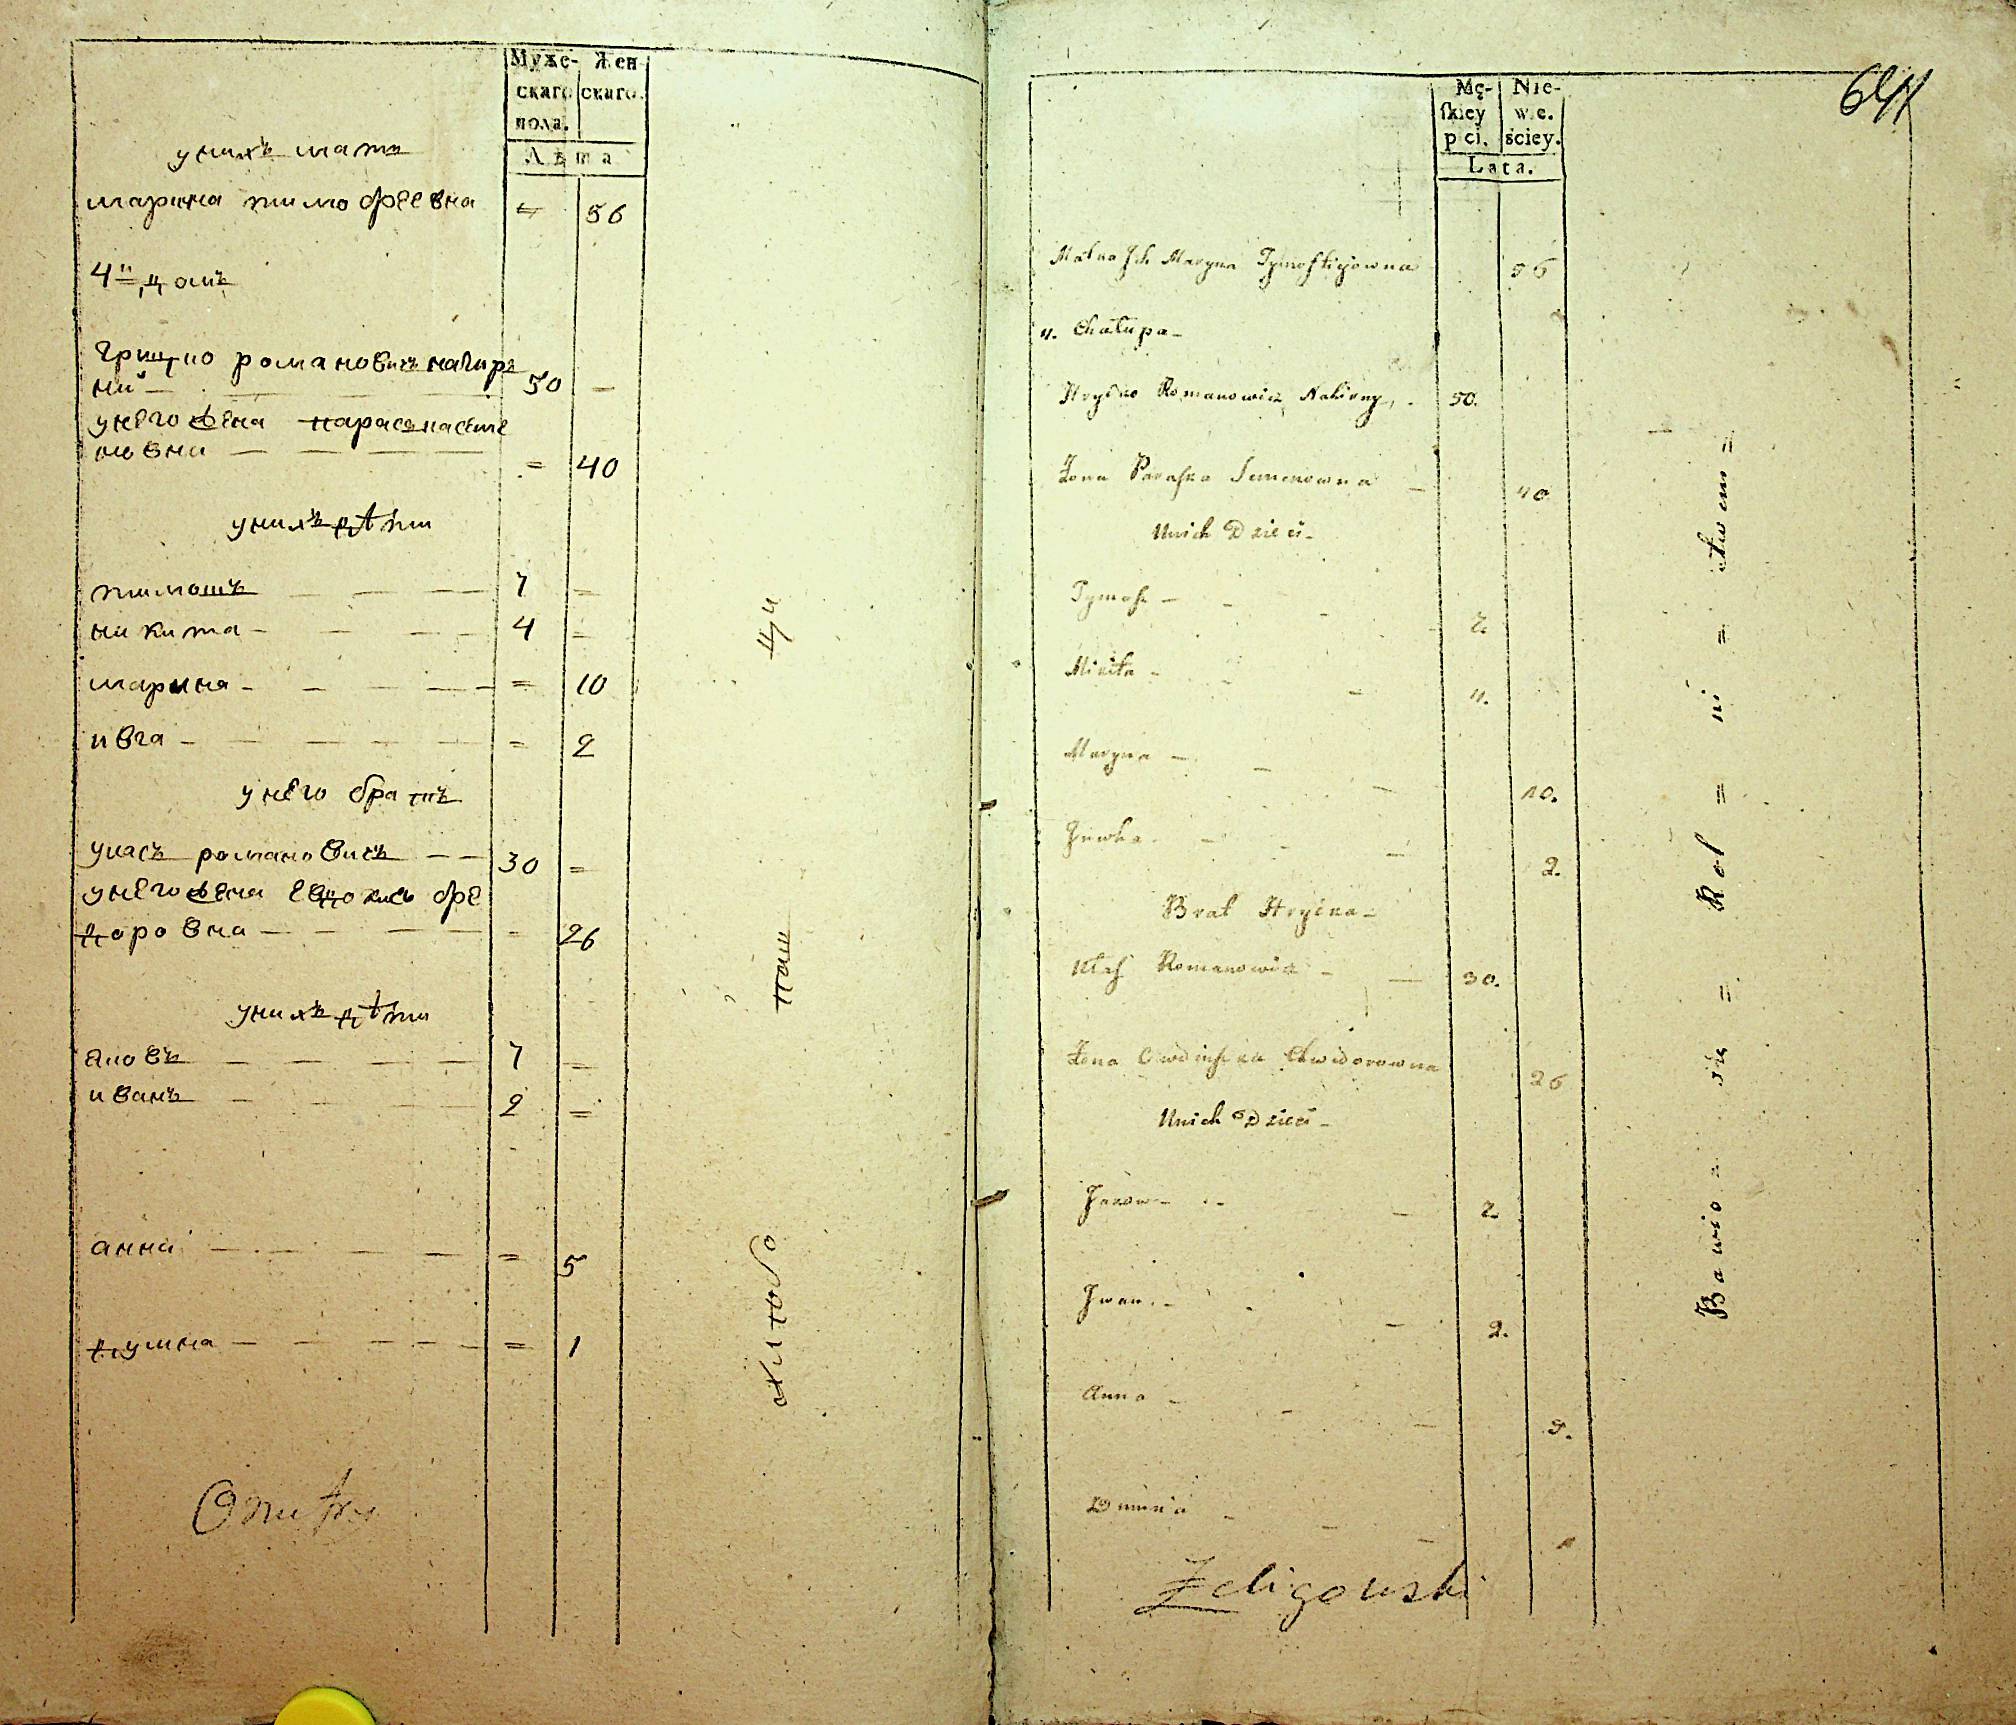 Муже- Жен
скаго скаго.
пола.
Лѣта
унихъ мать
марина тимофѣевна = 56
4й домъ
Грицко романовичъ нагирь
ний — 50 —
унего жена параска насте
новна — — — — = 40
унихъ дѣти
тимошъ — — — 7 =
никита — — — — 4 =
марина — — — — = 10
ивга — — — — — = 2
унего братъ
уласъ романовичъ — — 30 =
унего жена евдокись фе
доровна — — — — = 26
унихъ дѣти
яковъ — — — — 7 =
иванъ — — — — 2 =
анна — — — — = 5
думна — — — — = 1
хлибо паш ци
641
Mę- Nie-
ſkiey wie.
pci. ściey.
Lata.
Matka Jch Maryna Tymoſtiejowna 56
4. Chałupa —
Hryćko Romanowicz Nahirny, . 50.
Żona Paraſka Semenowna — 40
Unich Dzieci —
Tymoſz — — — 7.
Mikita — — — 4.
Maryna — — — 10.
Jiwha. — — — 2.
Brat Hryćka —
Ułaſ Romanowicz — — 30.
Żona Chwidorowna 26
Unich Dzieci —
Jakow — — — 7
Jwan. — — — 2.
Anna — — — 5.
Dumna — — — 1
Bawio = się = Rol = ni = ctwem =
Żeligowski